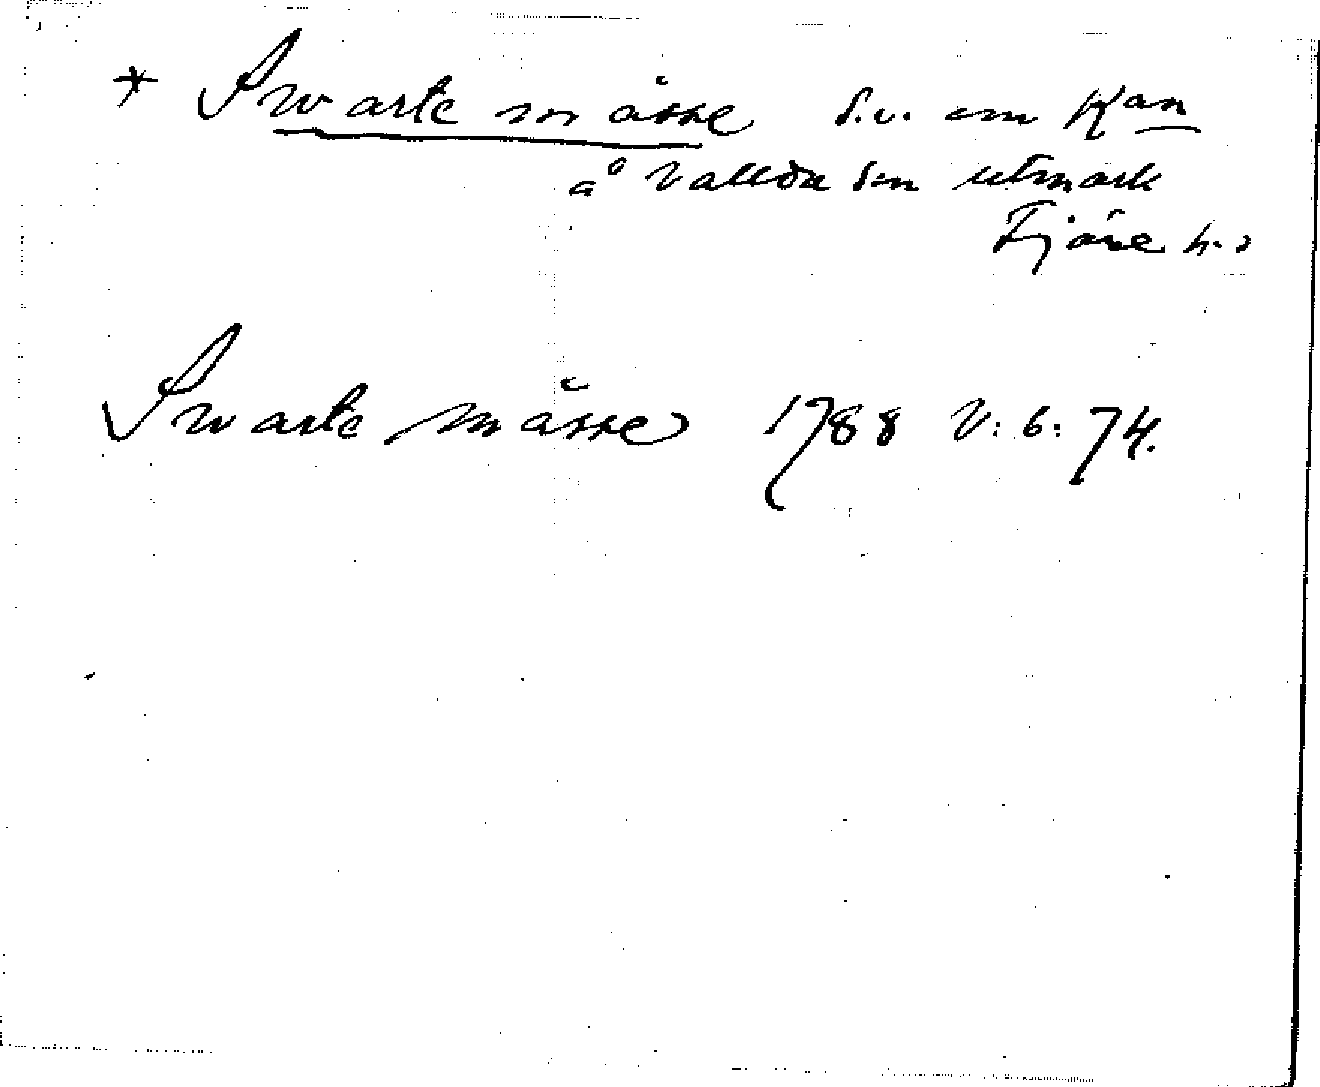 * Swarte måsse S.v. om Kan
å Vallda sn utmark
Fjäre h.d
Swarte måsse 1788 V: 6: 74.